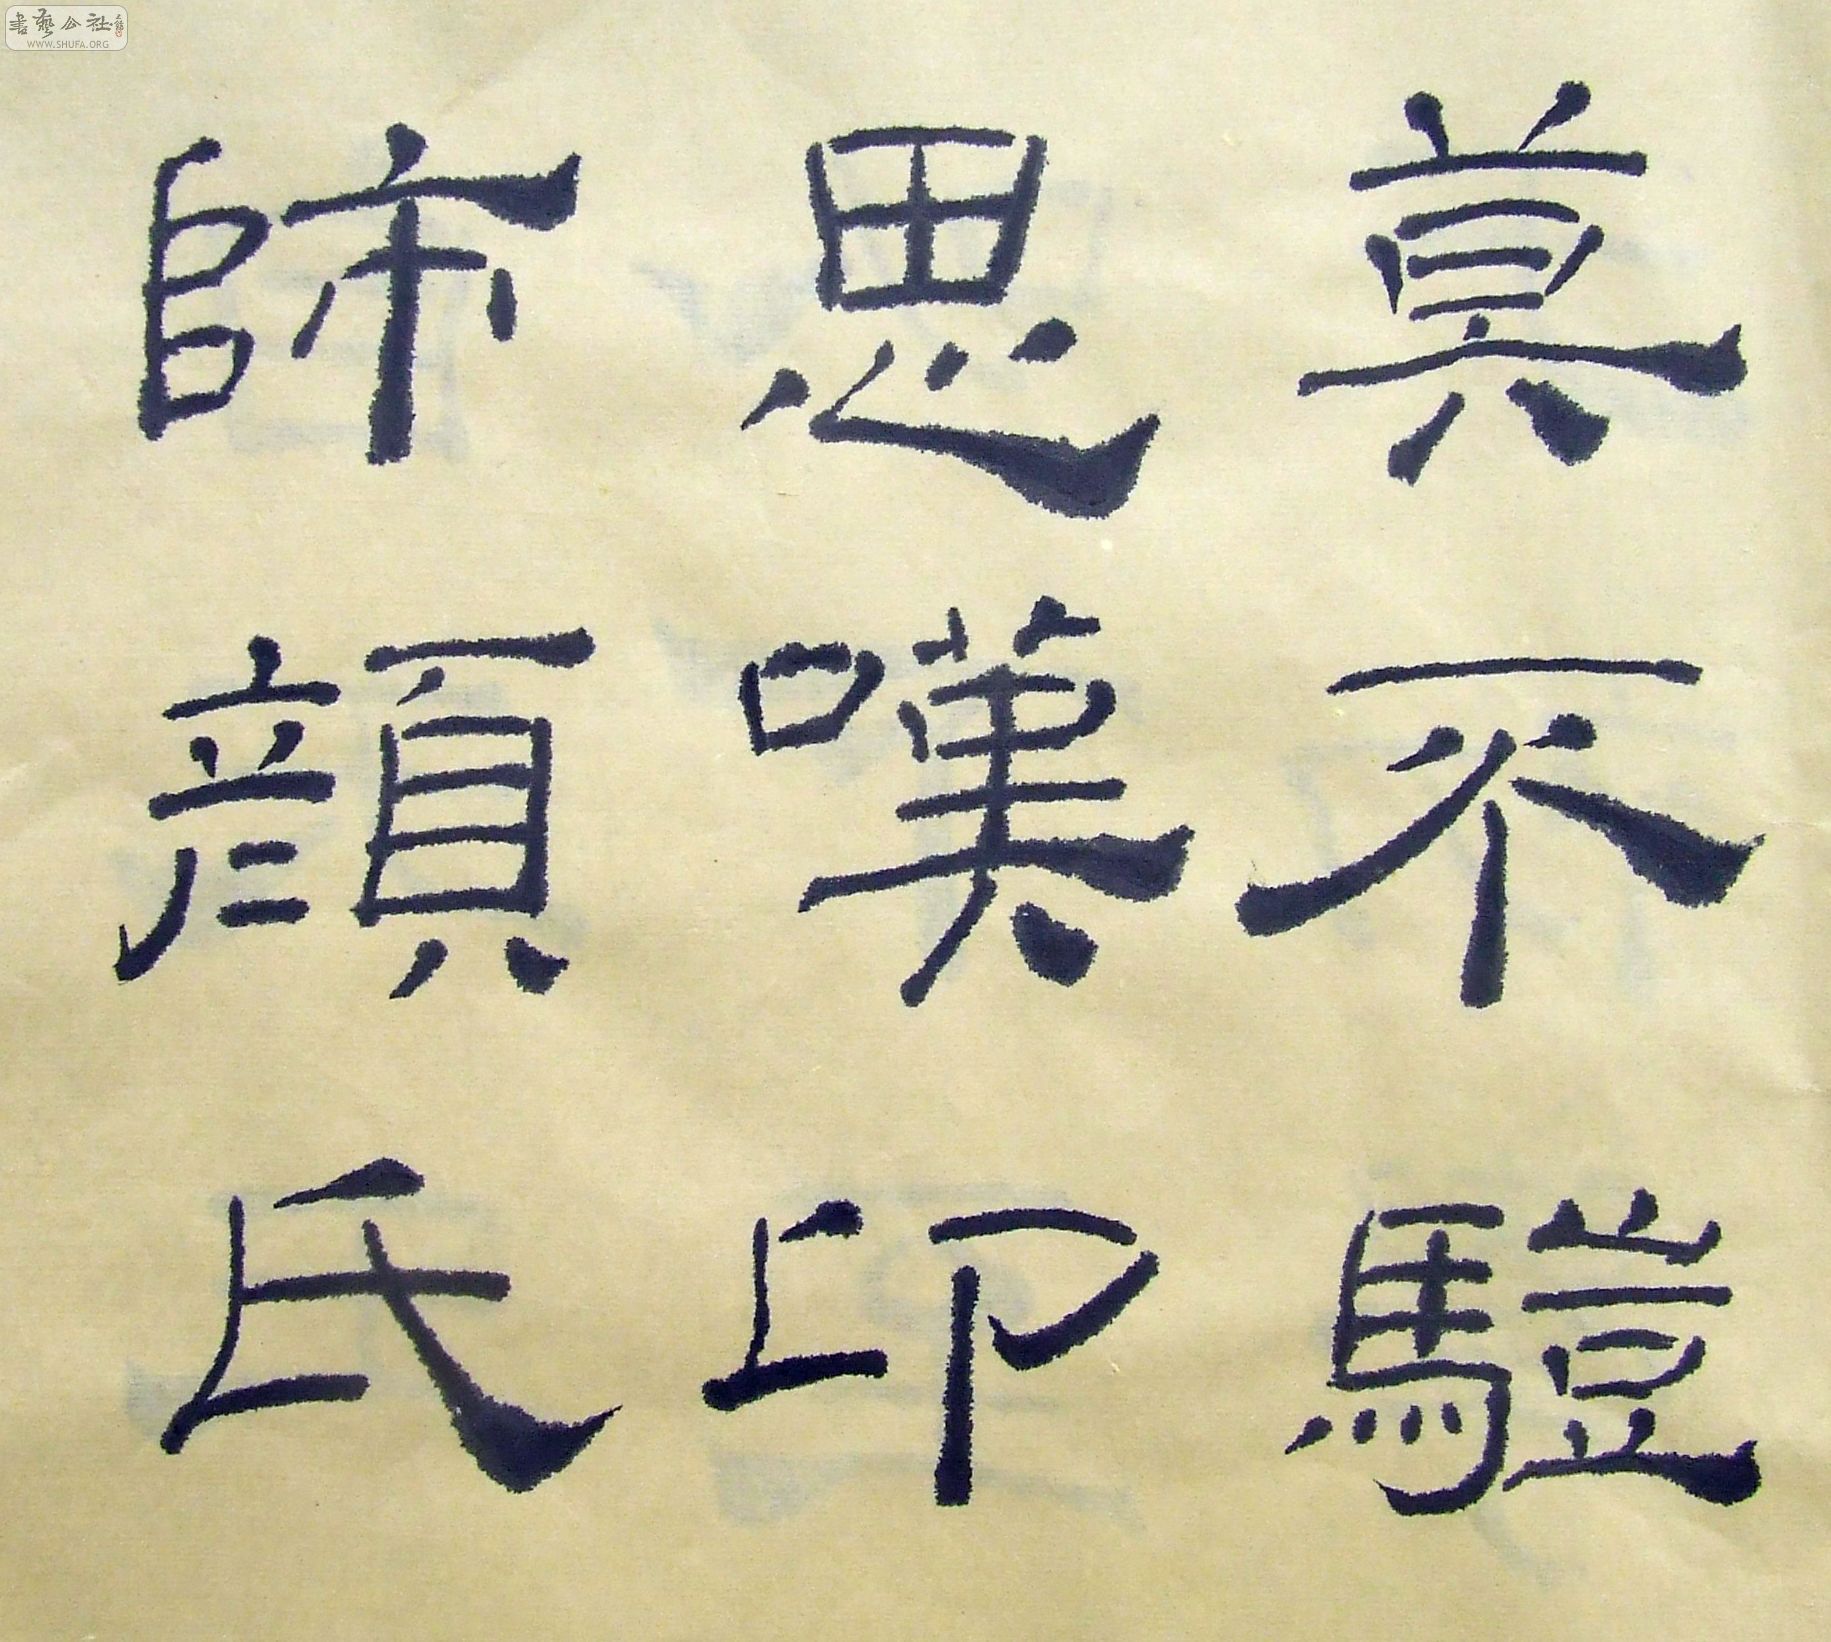 書藝公社
WWW.SHUFA.ORG
莫不⿰馬豈
思嘆卬
師顏氏